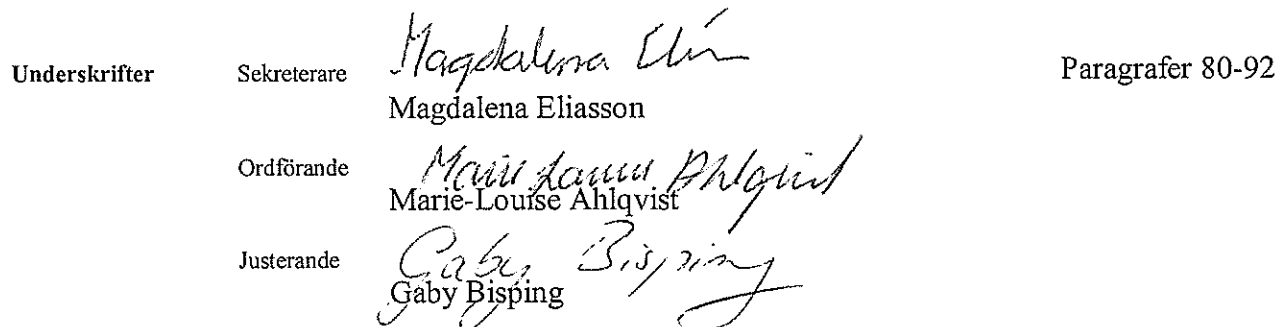 Underskrifter Sekreterare Magdalena Elin Paragrafer 80-92
Magdalena Eliasson
Ordförande Marie Louise Ahlqvist
Marie-Louise Ahlqvist
Justerande Gaby Bisping
Gaby Bisping